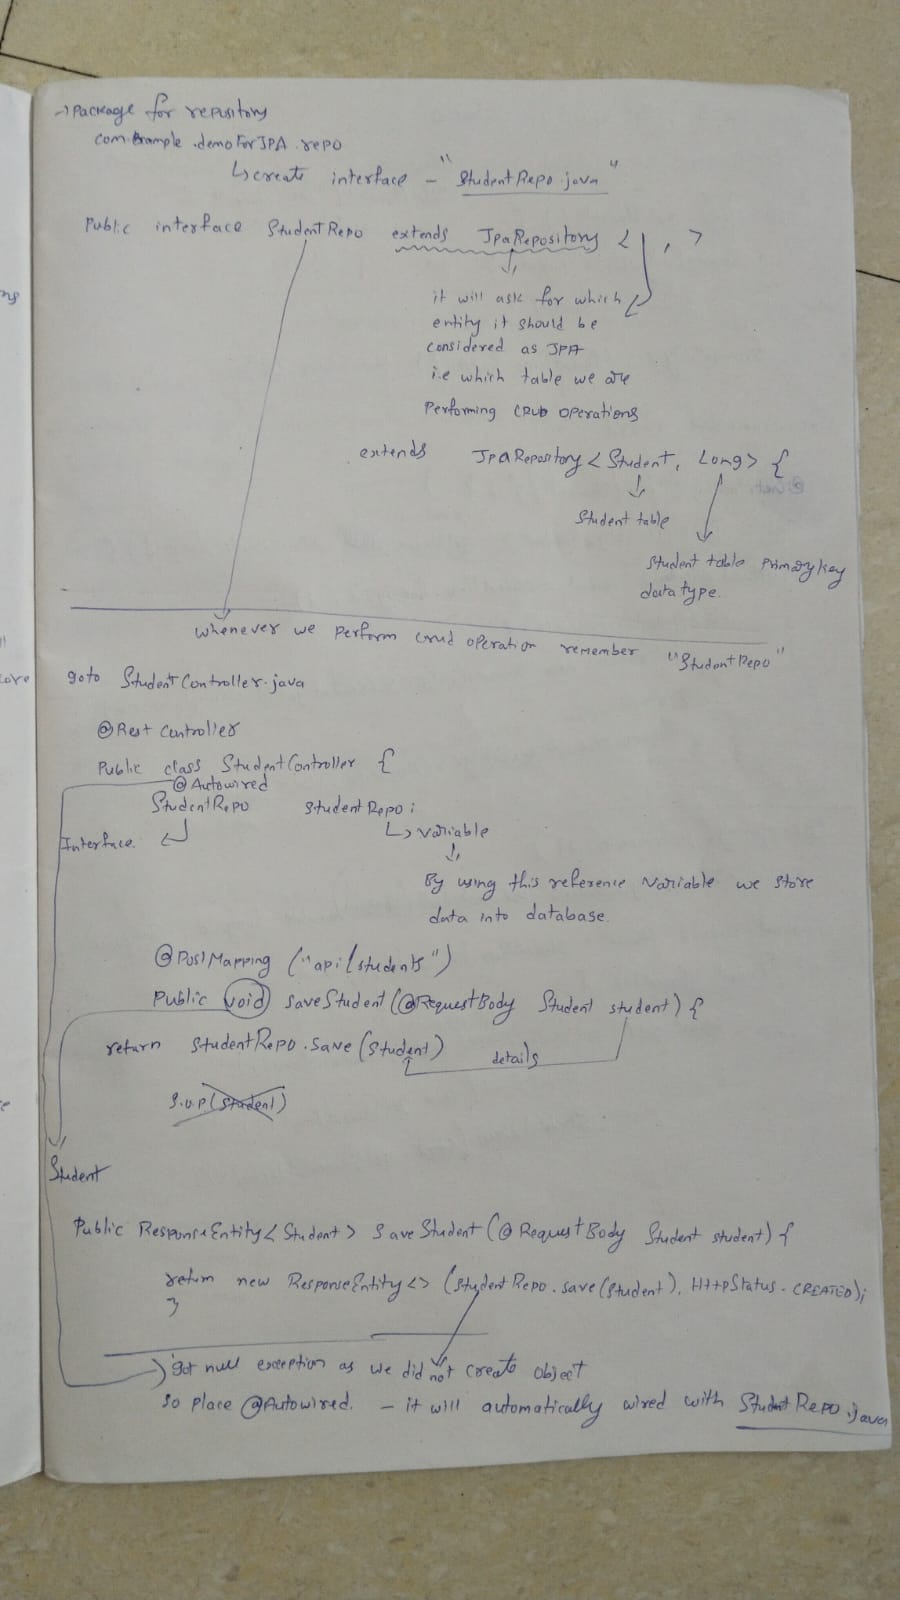 → Package for repository
com.Example.demoForJPA.repo
↳ create interface - "StudentRepo.java"
Public interface StudentRepo extends JpaRepository < , >
it will ask for which
entity it should be
considered as JPA
i.e which table we are
Performing CRUD operations
extends JpaRepository < Student, Long > {
Student table
Student table Primary key
data type.
whenever we perform crud operation remember "StudentRepo"
goto StudentController.java
@Rest Controller
Public class StudentController {
@Autowired
StudentRepo studentRepo;
Interface. ↳ variable
By using this reference variable we store
data into database.
@PostMapping ("api/students")
Public void saveStudent (@RequestBody Student student) {
return studentRepo.save (student) details
S.O.P (student)
Student
Public ResponseEntity < Student > saveStudent (@RequestBody Student student) {
return new ResponseEntity <> (studentRepo.save(student), HttpStatus.CREATED);
}
got null exception as we did not create object
so place @Autowired. - it will automatically wired with StudentRepo.java